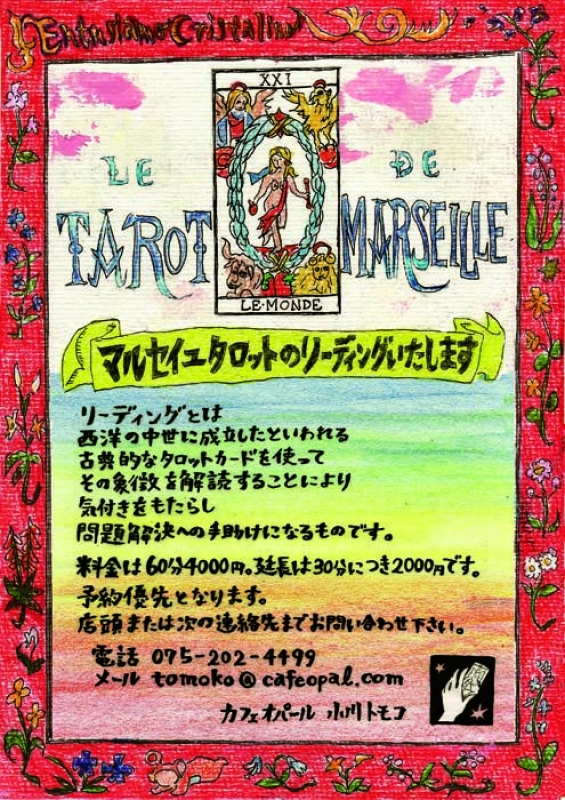 Entusiamo Cristallino
XXI
LE DE
TAROT MARSEILLE
LE·MONDE
マルセイユタロットのリーディングいたします
リーディングとは
西洋の中世に成立したといわれる
古典的なタロットカードを使って
その象徴を解読することにより
気付きをもたらし
問題解決への手助けになるものです。
料金は60分4000円。延長は30分につき2000円です。
予約優先となります。
店頭または次の連絡先までお問い合わせ下さい。
電話 075-202-4499
メール tomoko@cafeopal.com
カフェオパール 小川トモコ